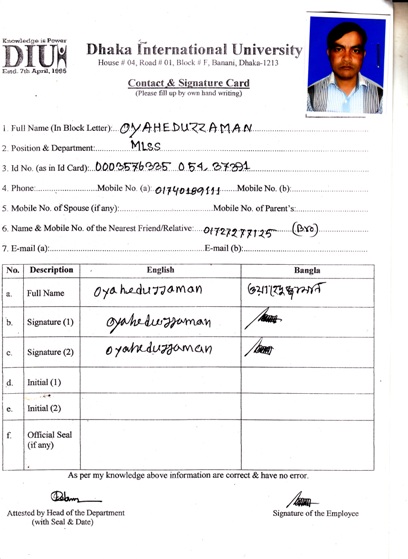 Knowledge is Power
DIU
Estd. 7th April, 1995
Dhaka International University
House # 04, Road # 01, Block # F, Banani, Dhaka-1213
Contact & Signature Card
(Please fill up by own hand writing)
1. Full Name (In Block Letter): OYAHEDUZZAMAN
2. Position & Department: MLSS
3. Id No. (as in Id Card): 0003576335 054,37391
4. Phone: Mobile No. (a): 01740189111 Mobile No. (b):
5. Mobile No. of Spouse (if any): Mobile No. of Parent's:
6. Name & Mobile No. of the Nearest Friend/Relative: 01727277125 (Bro)
7. E-mail (a): E-mail (b):
No. Description English Bangla
a. Full Name Oyaheduzzaman
b. Signature (1) Oyaheduzzaman
c. Signature (2) Oyaheduzzaman
d. Initial (1)
e. Initial (2)
f. Official Seal
(if any)
As per my knowledge above information are correct & have no error.
Attested by Head of the Department
(with Seal & Date)
Signature of the Employee